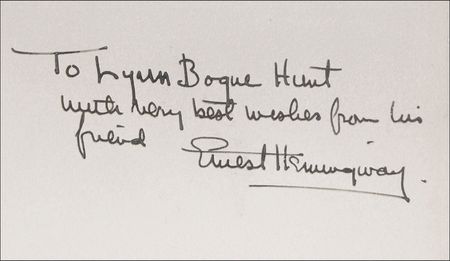 To Lynn Bogue Hunt
with very best wishes from his
friend Ernest Hemingway.